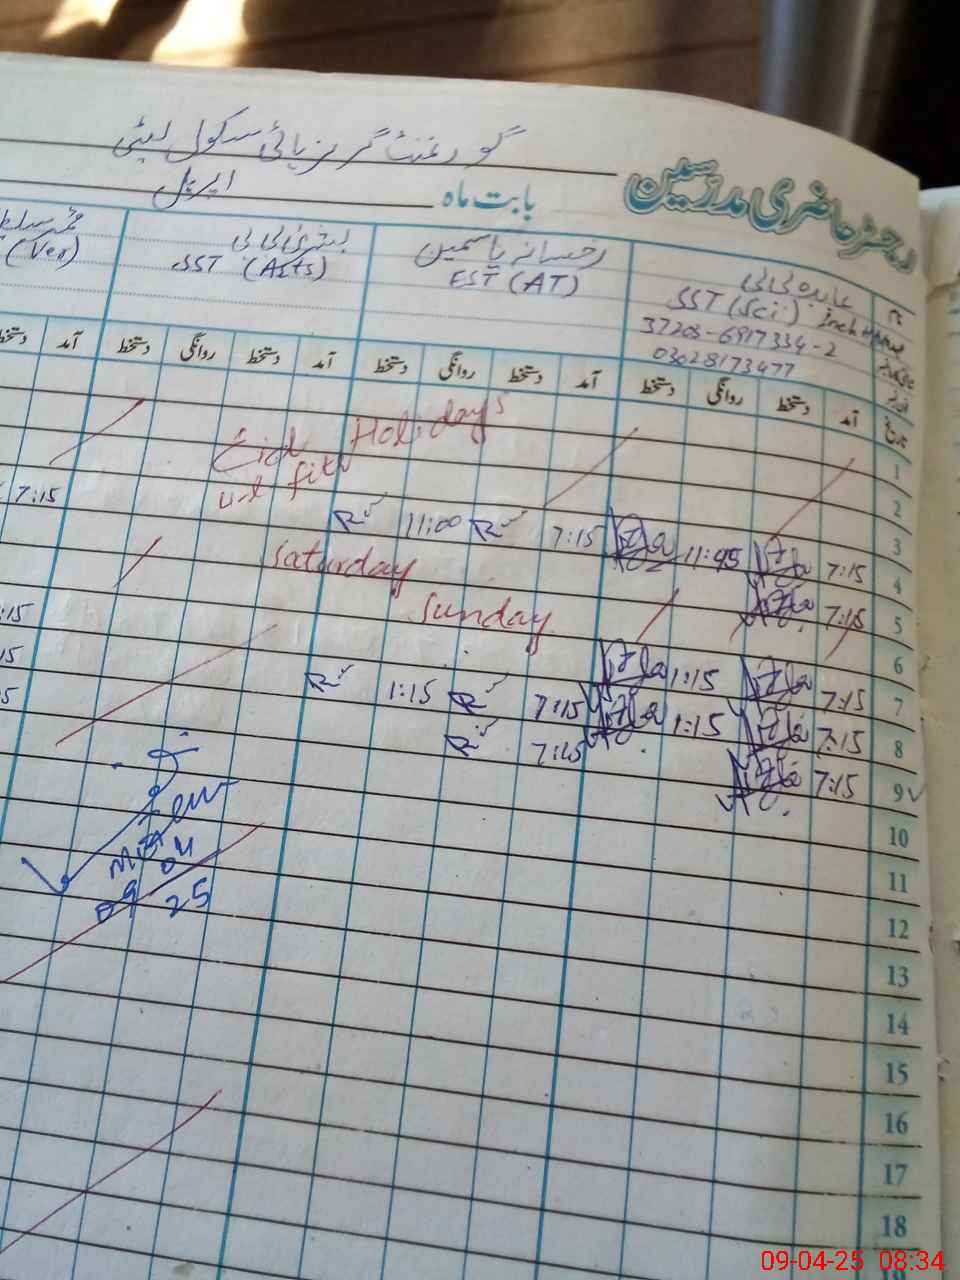 گورنمنٹ گرلز ہائی سکول لیٹی
رجسٹر حاضری مدرسین
بابت ماہ اپریل
نام
عابدہ بی بی
SST (Sci) Inch
37208-6917334-2
03028173477
رخسانہ یاسمین
EST (AT)
بشریٰ بی بی
SST (Arts)
(Ver)
تاریخ آمد دستخط روانگی دستخط آمد دستخط روانگی دستخط آمد دستخط روانگی دستخط آمد دستخط
1
2
Eid Holidays
ul fitr
3
4 7:15 11:45 7:15 11:00 7:15
5 7:15 Saturday
6 Sunday
7 7:15 1:15 7:15 1:15
8 7:15 1:15 7:15
9 7:15
10
11
12
13
14
15
16
17
18
:15
15
5
09 04
25
09-04-25 08:34